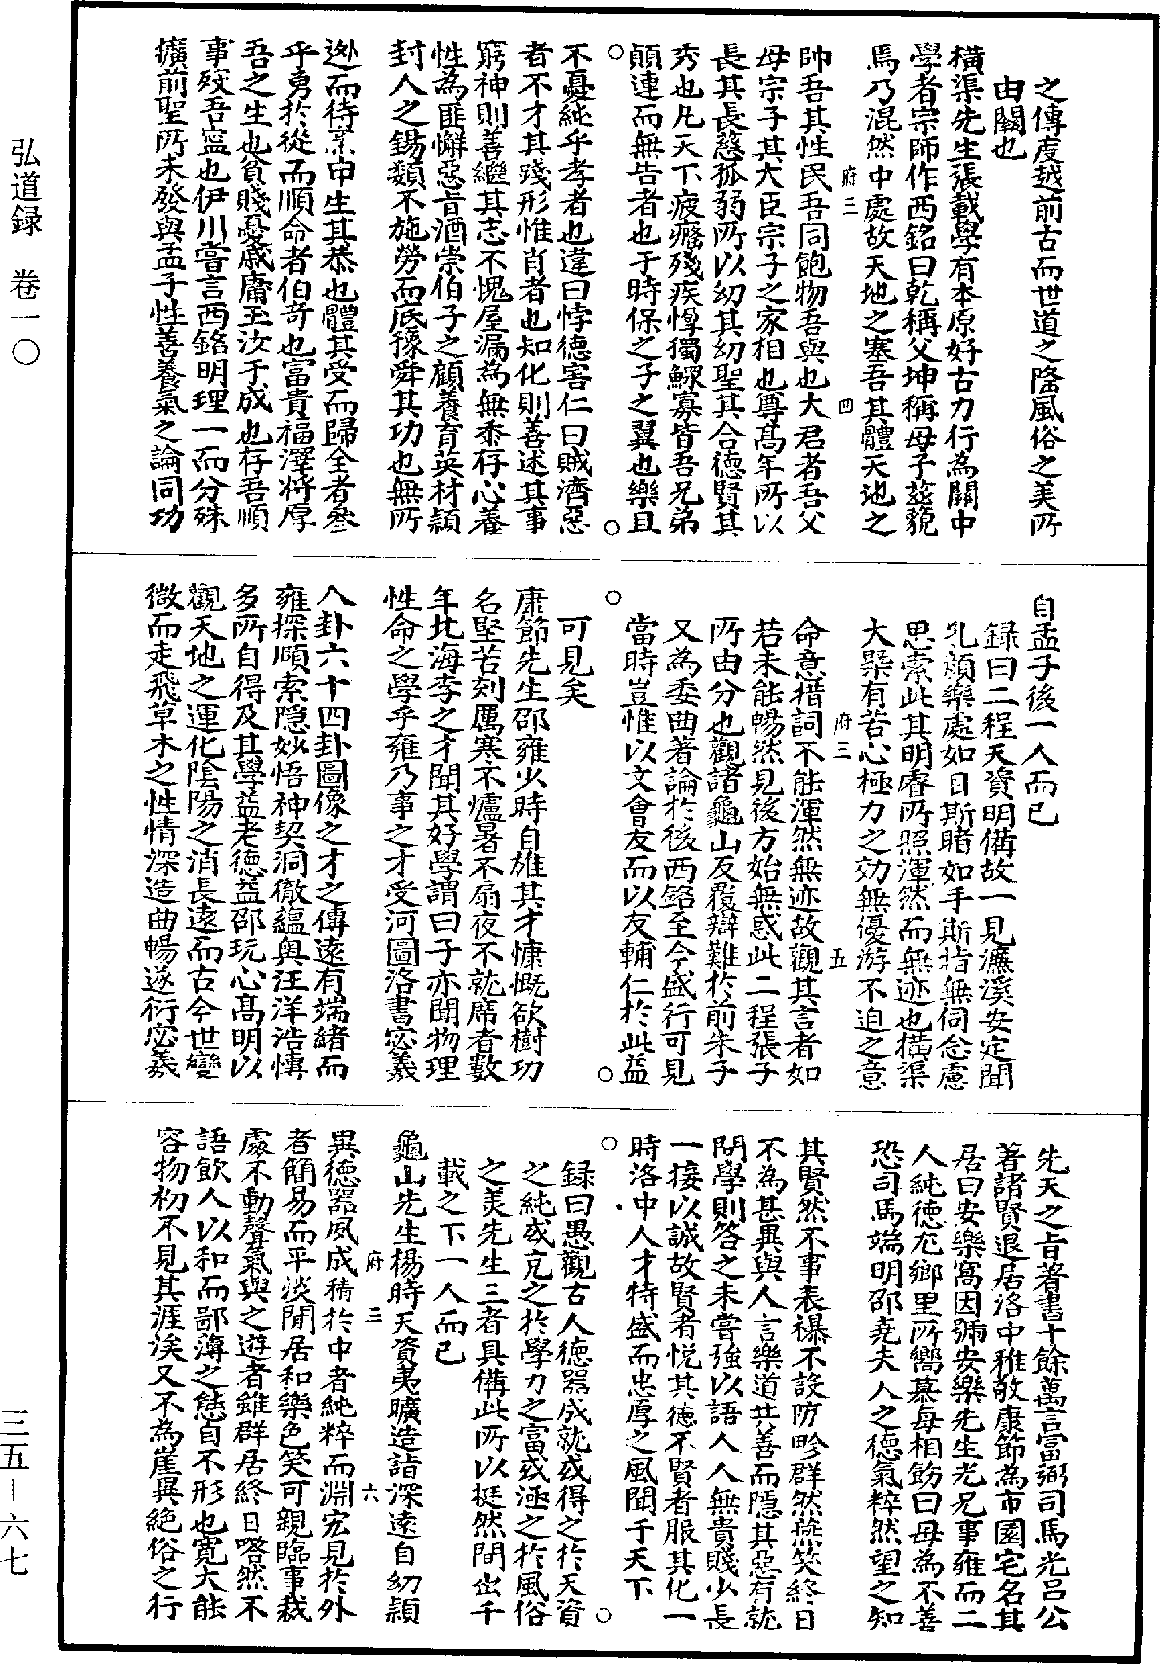 弘道録　卷一〇
三五－六七
之傳度越前古而世道之隆風俗之美所
由闗也
橫渠先生張載學有本原好古力行為關中
學者宗師作西銘曰乾稱父坤稱母子兹藐
焉乃混然中處故天地之塞吾其體天地之
府三　四
帥吾其性民吾同飽物吾與也大君者吾父
母宗子其大臣宗子之家相也尊髙年所以
長其長慈孤弱所以幼其幼聖其合德賢其
秀也凡天下疲癃殘疾惸獨鰥寡皆吾兄弟
顛連而無告者也于時保之子之翼也樂且
不憂純乎孝者也違曰悖德害仁曰賊濟惡
者不才其踐形惟肖者也知化則善述其事
窮神則善繼其志不愧屋漏為無忝存心養
性為匪懈惡旨酒崇伯子之顧養育英材穎
封人之錫類不施勞而底豫舜其功也無所
逃而待烹申生其恭也體其受而歸全者參
乎勇於從而順命者伯竒也富貴福澤将厚
吾之生也貧賤憂戚庸玉汝于成也存吾順
事殁吾寧也伊川嘗言西銘明理一而分殊
擴前聖所未發與孟子性善養氣之論同功
自孟子後一人而已
録曰二程天資明備故一見濂溪安定聞
孔顔樂處如目斯睹如手斯指無伺念慮
思索此其明睿所照渾然而無迹也橫渠
大槩有苦心極力之効無優游不迫之意
府三　五
命意措詞不能渾然無迹故觀其言者如
若未能暢然見後方始無惑此二程張子
所由分也觀諸龜山反覆辯難於前朱子
又為委曲著論於後西銘至今盛行可見
當時豈惟以文會友而以友輔仁於此益
可見矣
康節先生邵雍少時自雄其才慷慨欲樹功
名堅苦刻厲寒不爐暑不扇夜不就席者數
年北海李之才聞其好學謂曰子亦聞物理
性命之學乎雍乃事之才受河圖洛書宓羲
八卦六十四卦圖像之才之傳遠有端緒而
雍探賾索隱妙悟神契洞徹蘊奥汪洋浩慱
多所自得及其學益老德益邵玩心髙明以
觀天地之運化陰陽之消長遠而古今世變
微而走飛草木之性情深造曲暢遂衍宓羲
先天之旨著書十餘萬言富弼司馬光吕公
著諸賢退居洛中雅敬康節為市園宅名其
居曰安樂窩因號安樂先生光兄事雍而二
人純德尤鄉里所嚮慕每相飭曰毋為不善
恐司馬端明邵堯夫人之德氣粹然望之知
其賢然不事表襮不設防畛群然燕笑終日
不為甚異與人言樂道其善而隱其惡有就
問學則答之未嘗強以語人人無貴賤少長
一接以誠故賢者悦其德不賢者服其化一
時洛中人才特盛而忠厚之風聞于天下
録曰愚觀古人德器成就或得之於天資
之純或充之於學力之富或涵之於風俗
之美先生三者具備此所以挺然間出千
載之下一人而已
龜山先生楊時天資夷曠造詣深遠自幼穎
府三　六
異德器夙成積於中者純粹而淵宏見於外
者簡易而平淡閒居和樂色笑可親臨事裁
處不動聲氣與之遊者雖群居終日嗒然不
語飲人以和而鄙薄之態自不形也寛大能
容物初不見其涯涘又不為崖異絶俗之行